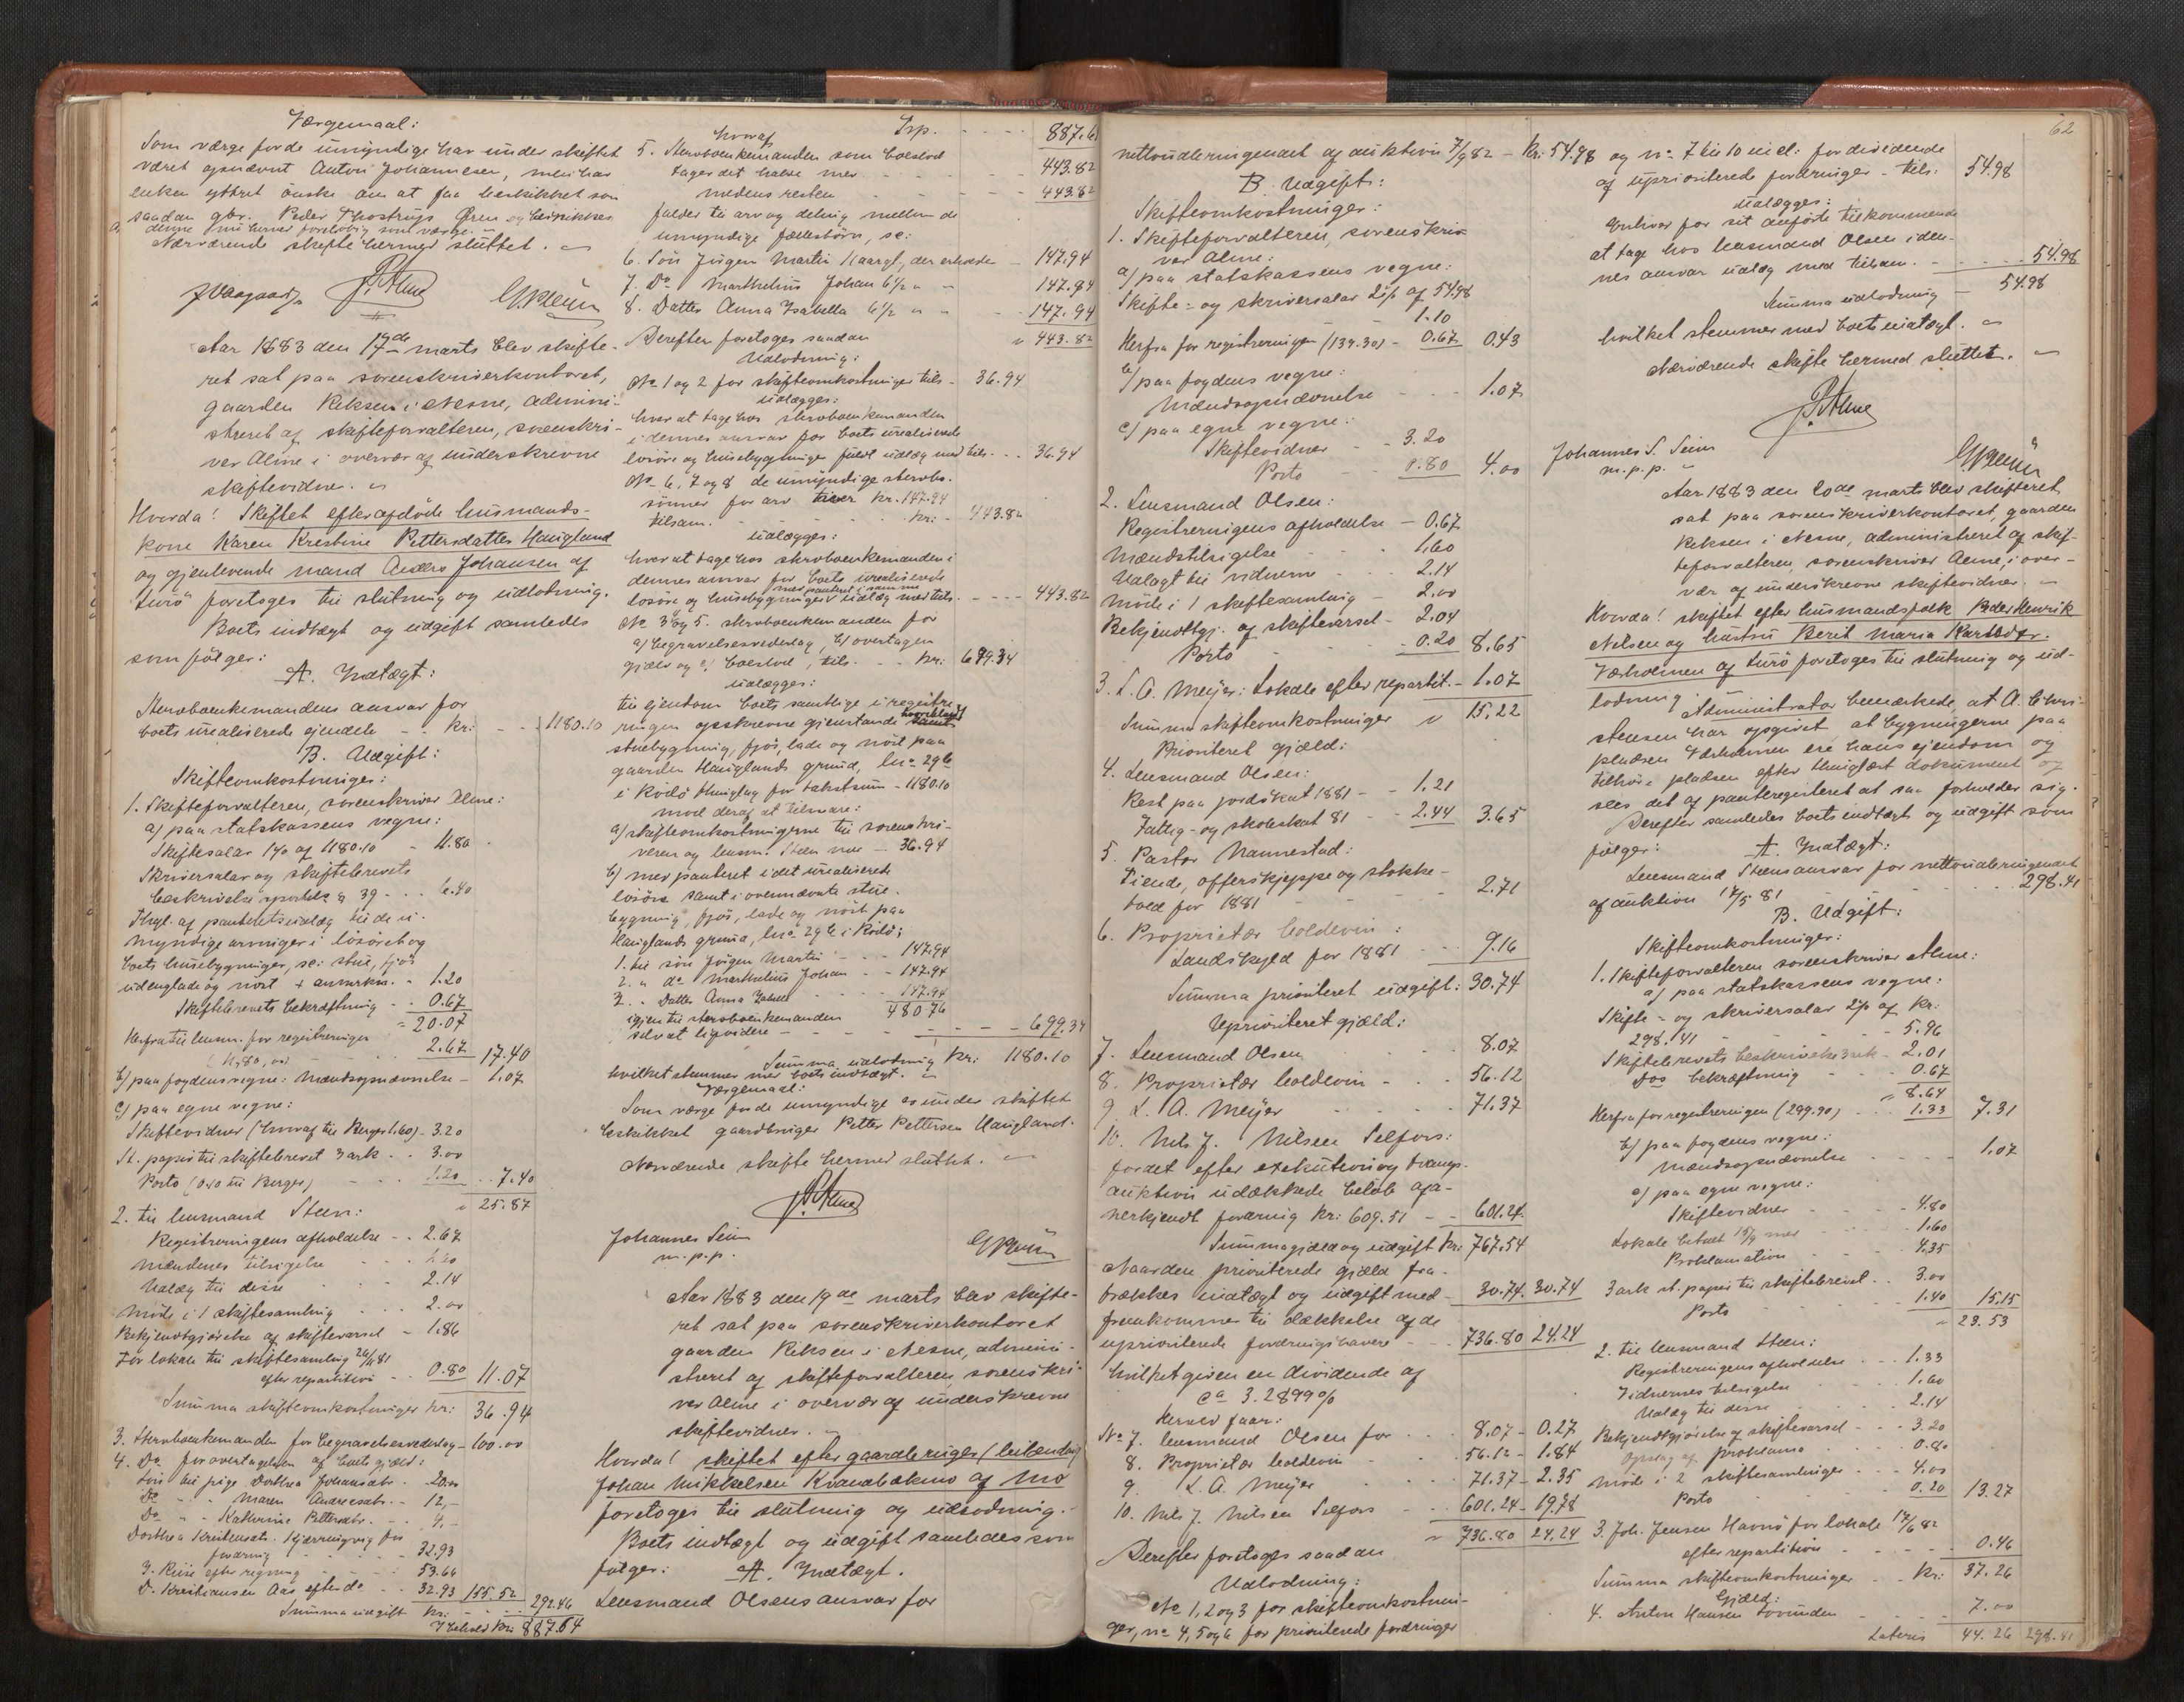 Værgemaal:
Som værge for de umyndige har under skiftet
været opnævnt Anton Johannesen, men har
enken yttret ønske om at faa beskikket som
saadan gbr. Peder Thostrups Øren og beskikkes
denne hermed foreløbig som værge.
Nærværende skifte hermed sluttet.
Aar 1883 den 17de marts blev skifte-
ret sat paa sorenskriverkontoret,
gaarden Reksen i Nesne, admini-
streret af skifteforvalteren, sorenskri-
ver Alme i overvær af underskrevne
skiftevidner.
Hvorda! Skiftet efter afdøde husmands-
kone Karen Kristine Pettersdatter Haugland
og gjenlevende mand Anders Johansen af
Lurø foretoges til slutning og udlodning.
Boets indtægt og udgift samledes
som følger:
A. Indtægt:
Sterboenkemandens ansvar for
boets urealiserede ejendele - kr: 1180.10
B. Udgift:
Skifteomkostninger:
1. Skifteforvalteren, sorenskriver Alme:
a) paa statskassens vegne:
Skiftesalar 1% af 1180.10 - 11.80
Skriversalar og skiftebrevets
beskrivelse 39 - 6.40
Thgl. af panteretsudlæg til de u-
myndige arvinger i løsøret og
boets husebygninger, sc: stue, fjøs
lade og nøst + - 1.20
Skiftebrevets bekræftning - 0.67
20.07
Herfra til lensm. for registreringen
2.67 17.40
b) paa fogdens vegne: Mændsopnævnelse - 1.07
c) paa egne vegne:
Skiftevidner (hvoraf til Berger 1.60) - 3.20
St. papir til skiftebrevet 3 ark - 3.00
Porto (0.40 til Berger) 1.20 7.40
25.87
2. til lensmand Steen:
Registreringens afholdelse - 2.67
Mændenes tilsigelse 1.60
Udlæg til disse 2.14
Møde i 1 skiftesamling 2.00
Bekjendtgjørelse af skiftevarsel - 1.86
For lokale til skiftesamling
efter repartition - 0.80 11.07
Summa skifteomkostninger kr: 36.94
3. Sterboenkemanden for begravelsesvederlag - 100.00
4. Do for overtagelsen af boets gjæld:
Løn til pige Dorthea Johansdtr. 20.00
Do - Maren Andreasdtr. - 12,-
Do - Kathrine Pettersdtr. - 4,-
Dorthea Kristensdtr. Kjærringvig for
fordring 32.93
J. Riise efter regning 53.66
D. Kristiansen Aas efter do 32.93 155.52 292.46
Summa udgift kr:
I behold kr: 887.64
Trp. 887.64
hvoraf
5. Sterboenkemanden som boeslod
tager det halve med 443.82
medens resten 443.82
falder til arv og deling mellem de
umyndige fællesbørn, sc:
6. Søn Jørgen Martin Kaargl., der erholder 147.94
7. Do Marthelius Johan 6 1/2 147.94
8. Datter Anna Ysabella 6 1/2 147.94
443.82
Derefter foretoges saadan
Udlodning:
No 1 og 2 for skifteomkostninger tils - 36.94
udlægges:
hver at tage hos sterboenkemanden
i dennes ansvar for boets urealiserede
løsøre og husebygninger fuldt udlæg med tils - 36.94
No 6, 7 og 8 de umyndige sterbo-
sønner for arv hver kr. 147.94
tilsam. kr: 443.82
udlægges:
hver at tage hos sterboenkemanden i
dennes ansvar for boets urealiserede
med panteret i samme
løsøre og husebygninger udlæg med tils. 443.82
No 3 og 5. sterboenkemanden for
a) begravelsesvederlag, b) overtagen
gjæld og c) boeslod, tils. kr: 699.34
udlægges:
til ejendom boets samtlige i registre-
ringen opskrevne gjenstande
stuebygning, fjøs, lade og nøst paa
gaarden Hauglands grund, lno 29b
i Rødø thinglag for takstsum - 1180.10
mod deraf at tilsvare:
a) skifteomkostningerne til sorenskri-
veren og lensm. Steen med 36.94
b) med panteret i det urealiserede
løsøre samt i ovennævnte stue-
bygning, fjøs, lade og nøst paa
Hauglands grund, lno 29b i Rødø:
1. til søn Jørgen Martin 147.94
2. do Marthelius Johan 147.94
3. Datter Anna Isabella 147.94
480.76
igjen til sterboenkemanden
selv at liqvidere 699.34
Summa udlodning kr: 1180.10
hvilket stemmer med boets indtægt.
Værgemaal:
Som værge for de umyndige er under skiftet
beskikket gaardbruger Petter Pettersen Haugland.
Nærværende skifte hermed sluttet.
Johannes Seim
m.p.p.
Aar 1883 den 19de marts blev skifte-
ret sat paa sorenskriverkontoret
gaarden Reksen i Nesne, admini-
streret af skifteforvalteren, sorenskri-
ver Alme i overvær af underskrevne
skiftevidner.
Hvorda! skiftet efter gaardbruger (leilending)
Johan Mikkelsen Kvandbækmo af Mo
foretoges til slutning og udlodning.
Boets indtægt og udgift samledes som
følger: A. Indtægt.
Lensmand Olsens ansvar for
62
nettoudbringendet af auktion 7/9 82 - kr: 54.98
B. Udgift:
Skifteomkostninger:
1. Skifteforvalteren, sorenskri-
ver Alme:
a) paa statskassens vegne:
Skifte- og skriversalar 2% af 54.98
1.10
Herfra for registreringen (134.30) - 0.67 0.43
b) paa fogdens vegne:
Mændsopnævnelse 1.07
c) paa egne vegne:
Skiftevidner 3.20
Porto 0.80 4.00
2. Lensmand Olsen:
Registreringens afholdelse - 0.67
Mændstilsigelse 1.60
Udlagt til vidnerne 2.14
Møde i 1 skiftesamling - 2.00
Bekjendtgj. af skiftevarsel - 2.04
Porto 0.20 8.65
3. L. A. Meyer: Lokale efter repartit. - 1.07
Summa skifteomkostninger 15.22
Prioriteret gjæld:
4. Lensmand Olsen:
Rest paa jordskat 1881 - 1.21
Fattig- og skoleskat 81 2.44 3.65
5. Pastor Nannestad:
Tiende, offerskjeppe og stokke-
told for 1881 2.71
6. Proprietær Coldevin:
Landskyld for 1881 9.16
Summa prioriteret udgift: 30.74
Uprioriteret gjæld:
7. Lensmand Olsen 8.07
8. Proprietær Coldevin 56.12
9. L. A. Meyer 71.37
10. Nils J. Nilsen Selfors:
for det efter exekution og tvangs-
auktion udækkede beløb af a-
nerkjendt fordring kr: 609.51 - 601.24
Summa gjæld og udgift kr: 767.54
Naar den prioriterede gjæld fra-
trækkes indtægt og udgift med 30.74 30.74
fremkommer til dækkelse af de
uprioriterede fordringshavere 736.80 24.24
hvilket given en dividende af
ca 3.2899%
Herved faar:
No 7. lensmand Olsen for 8.07 - 0.27
8. Proprietær Coldevin 56.12 - 1.84
9. L. A. Meyer 71.37 - 2.35
10. Nils J. Nilsen Selfors 601.24 - 19.78
736.80 24.24
Derefter foretoges saadan
Udlodning:
No 1, 2 og 3 for skifteomkostnin-
ger, no 4, 5 og 6 for prioriterede fordringer
og no 7 til 10 incl: for dividende
af uprioriterede fordringer - tils. 54.98
udlægges:
Enhver for sit anførte tilkommende
at tage hos lensmand Olsen i den-
nes ansvar udlæg med tilsam. 54.98
Summa udlodning 54.98
hvilket stemmer med boets indtægt.
Nærværende skifte hermed sluttet.
Johannes S. Seim
m.p.p.
Aar 1883 den 20de marts blev skifteret
sat paa sorenskriverkontoret, gaarden
Reksen i Nesne, administreret af skif-
teforvalteren, sorenskriver Alme, i over-
vær af underskrevne skiftevidner.
Hvorda! skiftet efter husmandsfolk Peder Henrik
Nilsen og hustru Berit Maria Karlsdtr.
Værholmen af Lurø foretoges til slutning og ud-
lodning. Administrator bemærkede, at A. Chri-
stensen har opgivet at bygningerne paa
pladsen Værholmen ere hans ejendom og
tilhøre pladsen efter thinglæst dokument og
sees det af panteregisteret at saa forholder sig.
Derefter samledes boets indtægt og udgift som
følger: A. Indtægt:
Lensmand Steens ansvar for nettoudbringendet
af auktion 17/5 81 298.41
B. Udgift:
Skifteomkostninger:
1. Skifteforvalteren sorenskriver Alme:
a) paa statskassens vegne:
Skifte- og skriversalar 2% af kr:
298.41 5.96
Skiftebrevets beskrivelse 3 ark - 2.01
Dos bekræftning 0.67
8.64
Herfra for registreringen (299.90) 1.33 7.31
b) paa fogdens vegne:
Mændsopnævnelse 1.07
c) paa egne vegne:
Skiftevidner 4.80
Lokale 1.60
Proklamation 4.35
3 ark st. papir til skiftebrevet 3.00
Porto 1.40 15.15
23.53
2. til lensmand Steen:
Registreringens afholdelse 1.33
Vidnernes tilsigelse 1.60
Udlæg til disse 2.14
Bekjendtgjørelse af skiftevarsel 3.20
Opslag af proklama 0.80
Møde i 2 skiftesamlinger 4.00
Porto 0.20 13.27
3. Joh. Jensen Havnø for lokale 17/6 82
efter repartition 0.46
Summa skifteomkostninger kr: 37.26
Gjæld:
4. Anton Hansen 7.00
Lateris 44.26 298.41